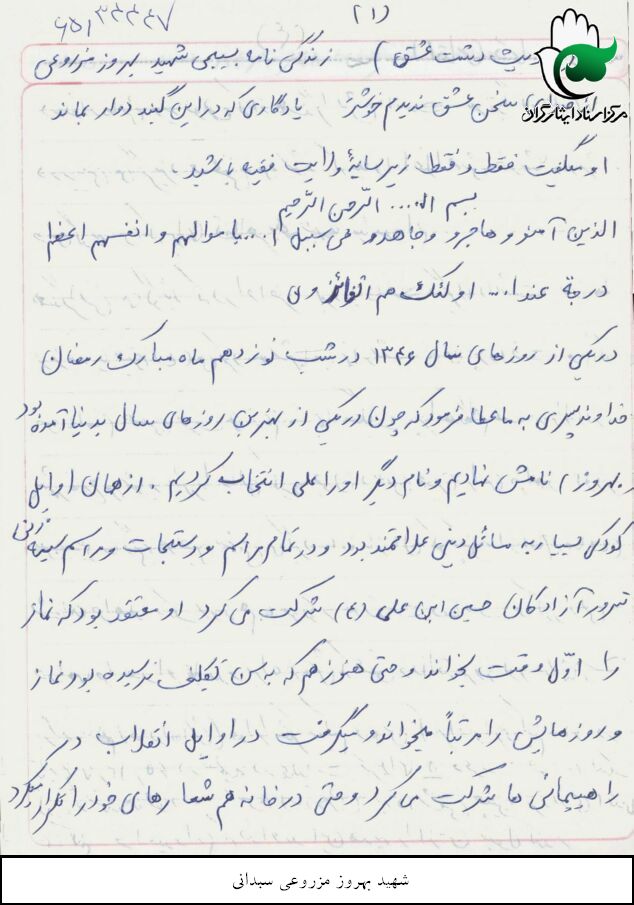 (۱)
۶۵/۳۲۴۴۷
دشت عشق ) زندگی نامه بسیجی شهید بهروز مزروعی
مرکز اسناد ایثارگران
از سخن عشق ندیدم خوشتر یادگاری که در این گنبد دوار بماند
او میگفت فقط و فقط زیر سایهٔ ولایت فقیه باشید.
بسم ا.... الرّحمن الرّحیم
الذین آمنو و هاجرو و جاهدو فی سبیل ا... باموالهم و انفسهم اعظم
درجة عند ا... اولئک هم الفائزون
در یکی از روزهای سال ۱۳۴۶ در شب نوزدهم ماه مبارک رمضان
خداوند پسری به ما عطا فرمود که چون در یکی از بهترین روزهای سال بدنیا آمده بود
(بهروز) نامش نهادیم و نام دیگر او را علی انتخاب کردیم . از همان اوایل
کودکی بسیار به مسائل دینی علاقمند بود و در تمام مراسم و دستجات و مراسم سینه زنی
سرور آزادگان حسین ابن علی (ع) شرکت می کرد او معتقد بود که نماز
را اوّل وقت بخواند و حتی هنوز هم که به سن تکلیف نرسیده بود نماز
و روزهایش را مرتباً میخواند و میگرفت در اوایل انقلاب در
راهپیمائی ها شرکت می کرد و حتی در خانه هم شعارهای خود را تکرار میکرد
شهید بهروز مزروعی سبدانی